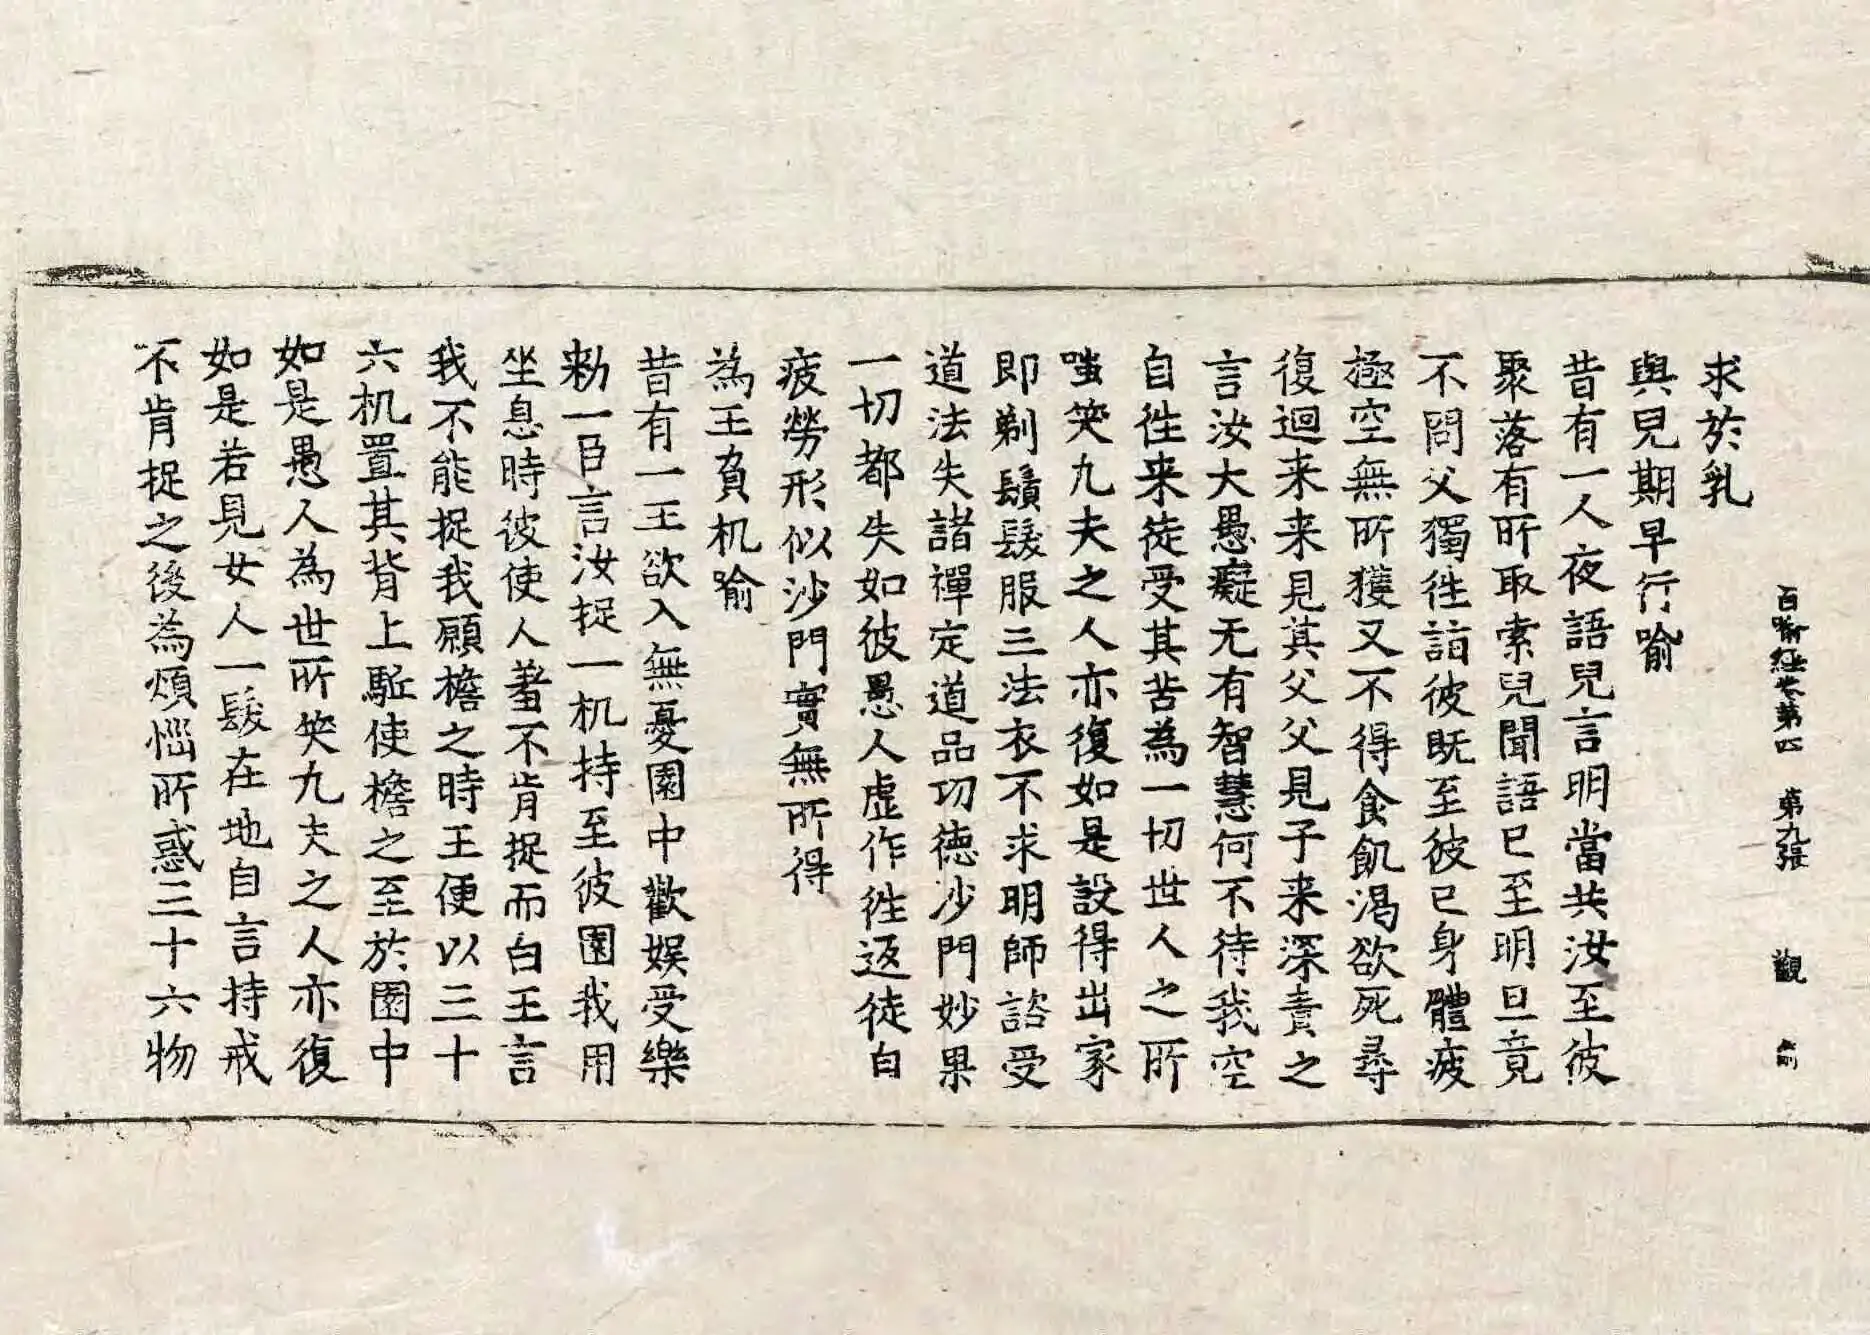 百喻經卷第四 第九張 觀
求於乳
與兒期早行喻
昔有一人夜語兒言明當共汝至彼
聚落有所取索兒聞語已至明旦竟
不問父獨徃詣彼既至彼已身體疲
極空無所獲又不得食飢渴欲死尋
復迴来来見其父父見子来深責之
言汝大愚癡无有智慧何不待我空
自徃来徒受其苦為一切世人之所
嗤笑凡夫之人亦復如是設得出家
即剃鬚髮服三法衣不求明師諮受
道法失諸禪定道品功德沙門妙果
一切都失如彼愚人虛作徃返徒自
疲勞形似沙門實無所得
為王負机喻
昔有一王欲入無憂園中歡娛受樂
勑一臣言汝捉一机持至彼園我用
坐息時彼使人羞不肯捉而白王言
我不能捉我願檐之時王便以三十
六机置其背上駈使檐之至於園中
如是愚人為世所笑凡夫之人亦復
如是若見女人一髮在地自言持戒
不肯捉之後為煩惱所惑三十六物